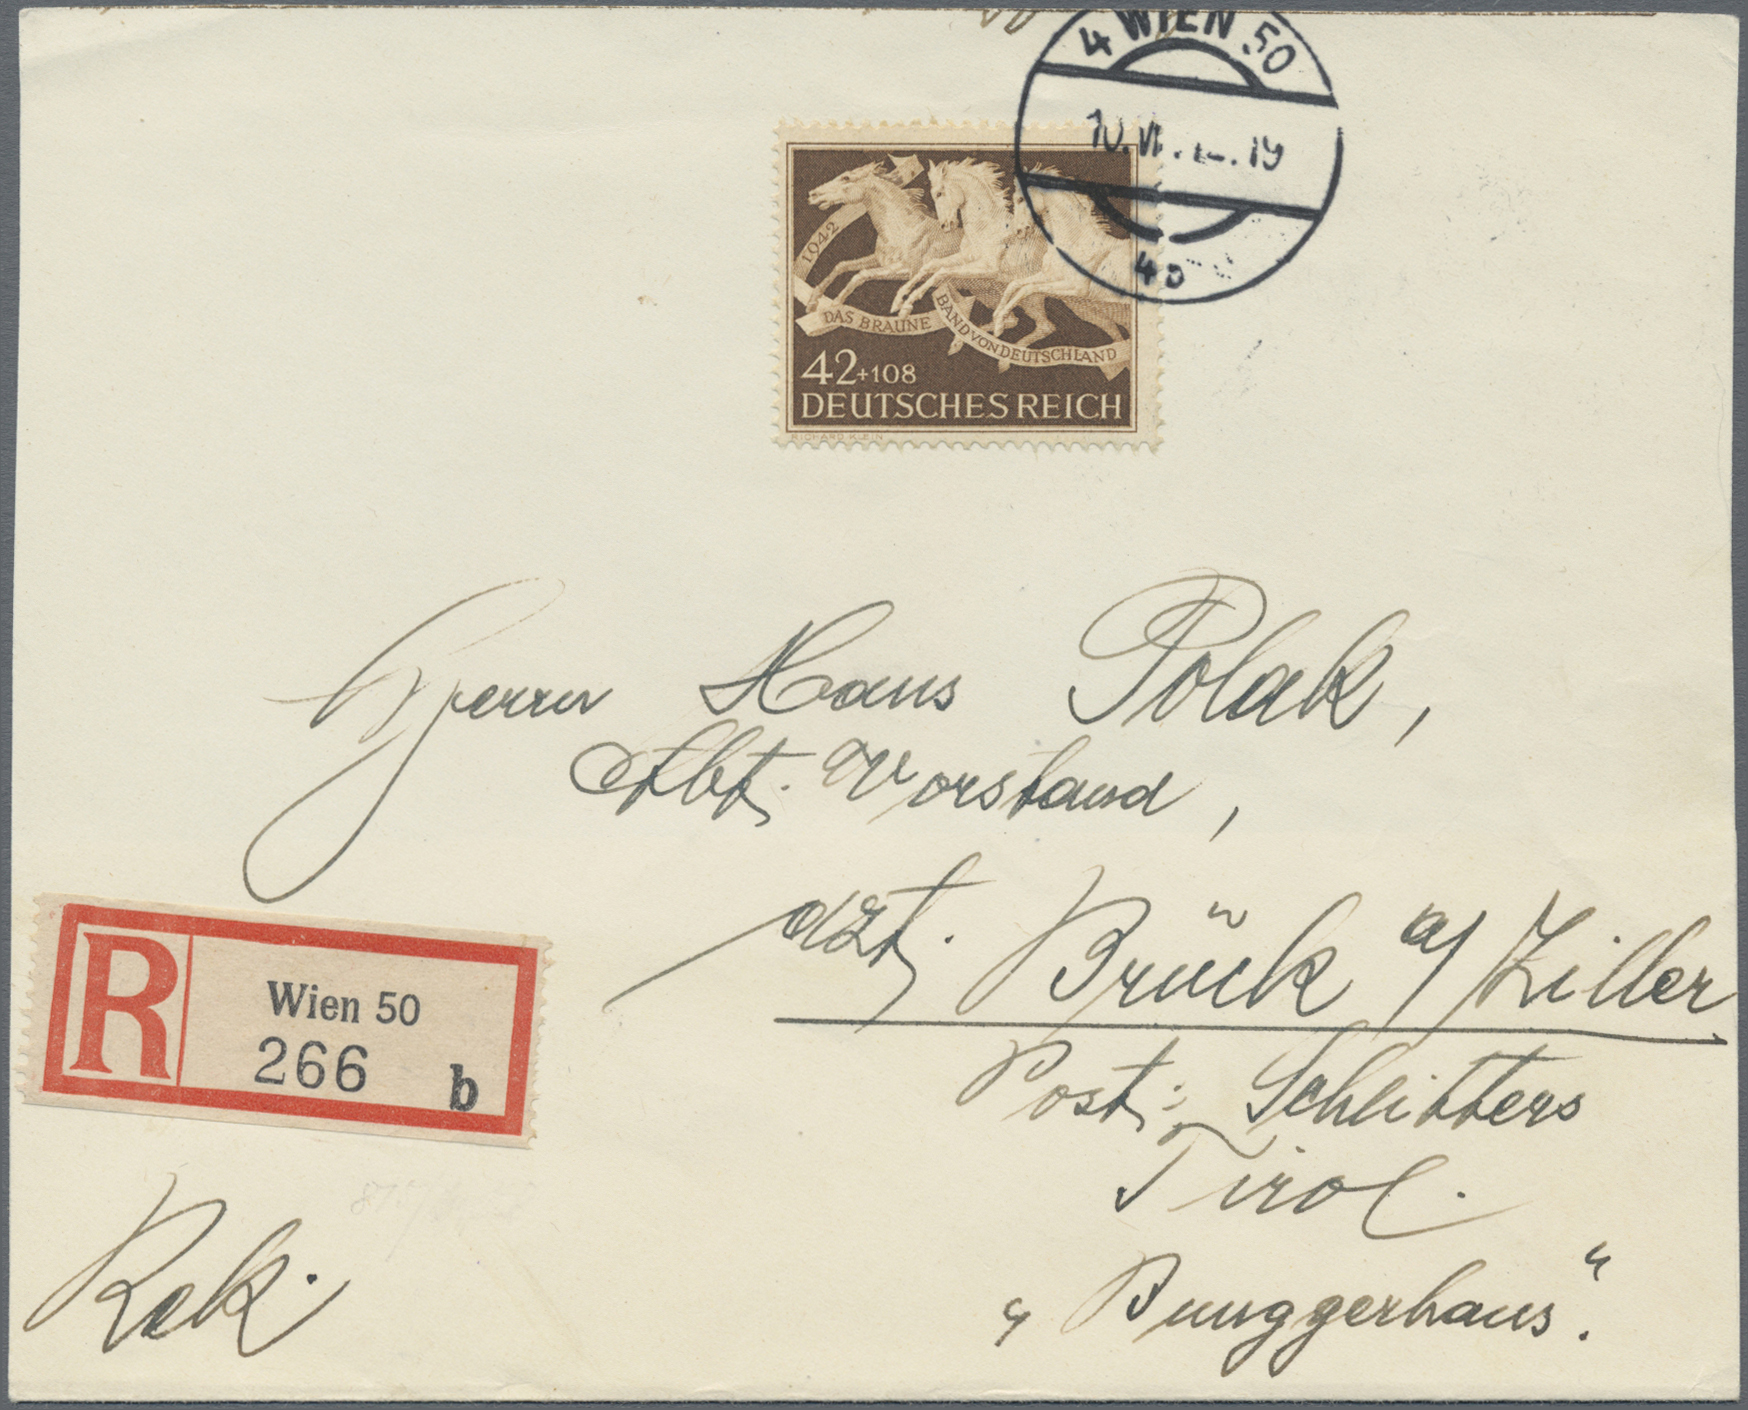 4 WIEN 50
1942
DAS BRAUNE BAND VON DEUTSCHLAND
42+108
DEUTSCHES REICH
RICHARD KLEIN
Herrn Hans Polak,
Abt. Vorstand,
dzt. Brück a/Ziller
Post: Schlitters
Tirol.
„Bunggerhaus“.
R
Wien 50
266 b
Rek.